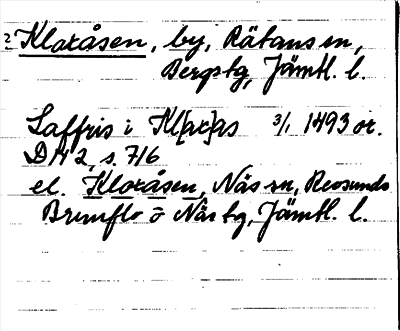 ? Klaxåsen, by, Rätans sn,
Bergs tg, Jämtl. l.
Laffris i Kl[ax]as 3/1 1493 or.
DH 2, s. 716
el. Klaxåsen, Näs sn, Revsunds
Brunflo o Näs tg, Jämtl. l.